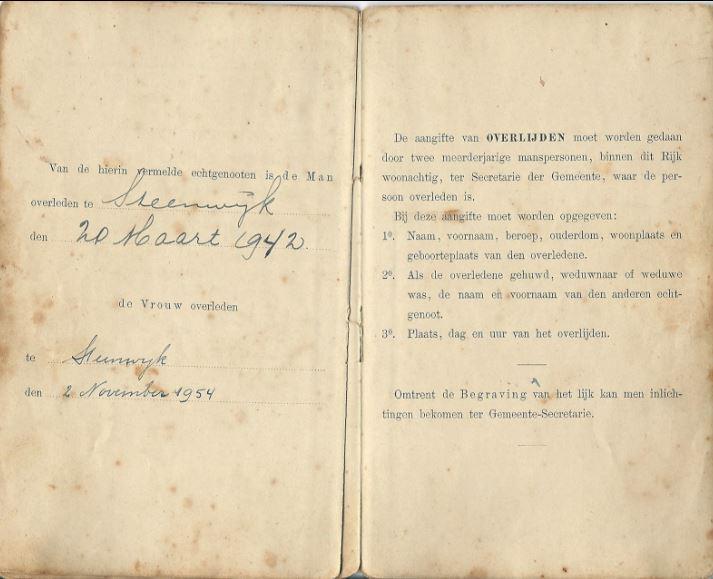 Van de hierin vermelde echtgenooten is de Man
overleden te Steenwijk
den 20 Maart 1942.
de Vrouw overleden
te Steenwijk
den 2 November 1954
De aangifte van OVERLIJDEN moet worden gedaan
door twee meerderjarige manspersonen, binnen dit Rijk
woonachtig, ter Secretarie der Gemeente, waar de per-
soon overleden is.
Bij deze aangifte moet worden opgegeven:
1º. Naam, voornaam, beroep, ouderdom, woonplaats en
geboorteplaats van den overledene.
2º. Als de overledene gehuwd, weduwnaar of weduwe
was, de naam en voornaam van den anderen echt-
genoot.
3º. Plaats, dag en uur van het overlijden.
Omtrent de Begraving van het lijk kan men inlich-
tingen bekomen ter Gemeente-Secretarie.